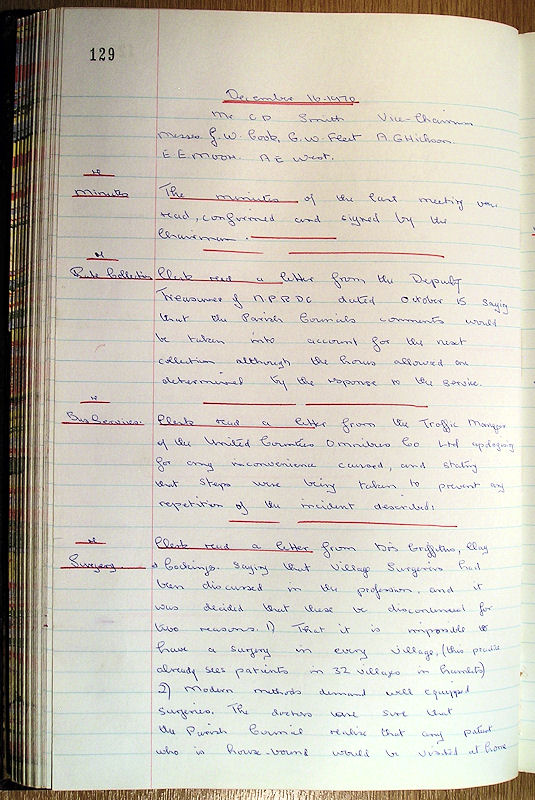 129
December 16. 1970
Mr C D Smith Vice-Chairman
Messrs J. W. Cook, G. W. Fleet A G Hickson.
E E Moon. A E West.
Minutes
The minutes of the last meeting were
read, conformed and signed by the
Chairman.
Rate Collection
Clerk read a letter from the Deputy
Treasurer of N.P.R.D.C dated October 15 saying
that the Parish Councils comments would
be taken into account for the next
collection although the hours allowed are
determined by the response to the service.
Bus Services.
Clerk read a letter from the Traffic Manager
of the United Counties Omnibus Co Ltd apologising
for any inconvenience caused, and stating
that steps were being taken to prevent any
repetition of the incident described.
Surgery
Clerk read a letter from Drs Griffiths, Clay
& Cockings. Saying that Village Surgeries had
been discussed in the profession, and it
was decided that these be discontinued for
two reasons. 1) That it is impossible to
have a surgery in every village, (this practice
already sees patients in 32 villages or hamlets)
2) Modern methods demand well equipped
surgeries. The doctors were sure that
the Parish Council realise that any patient
who is house-bound would be visited at home